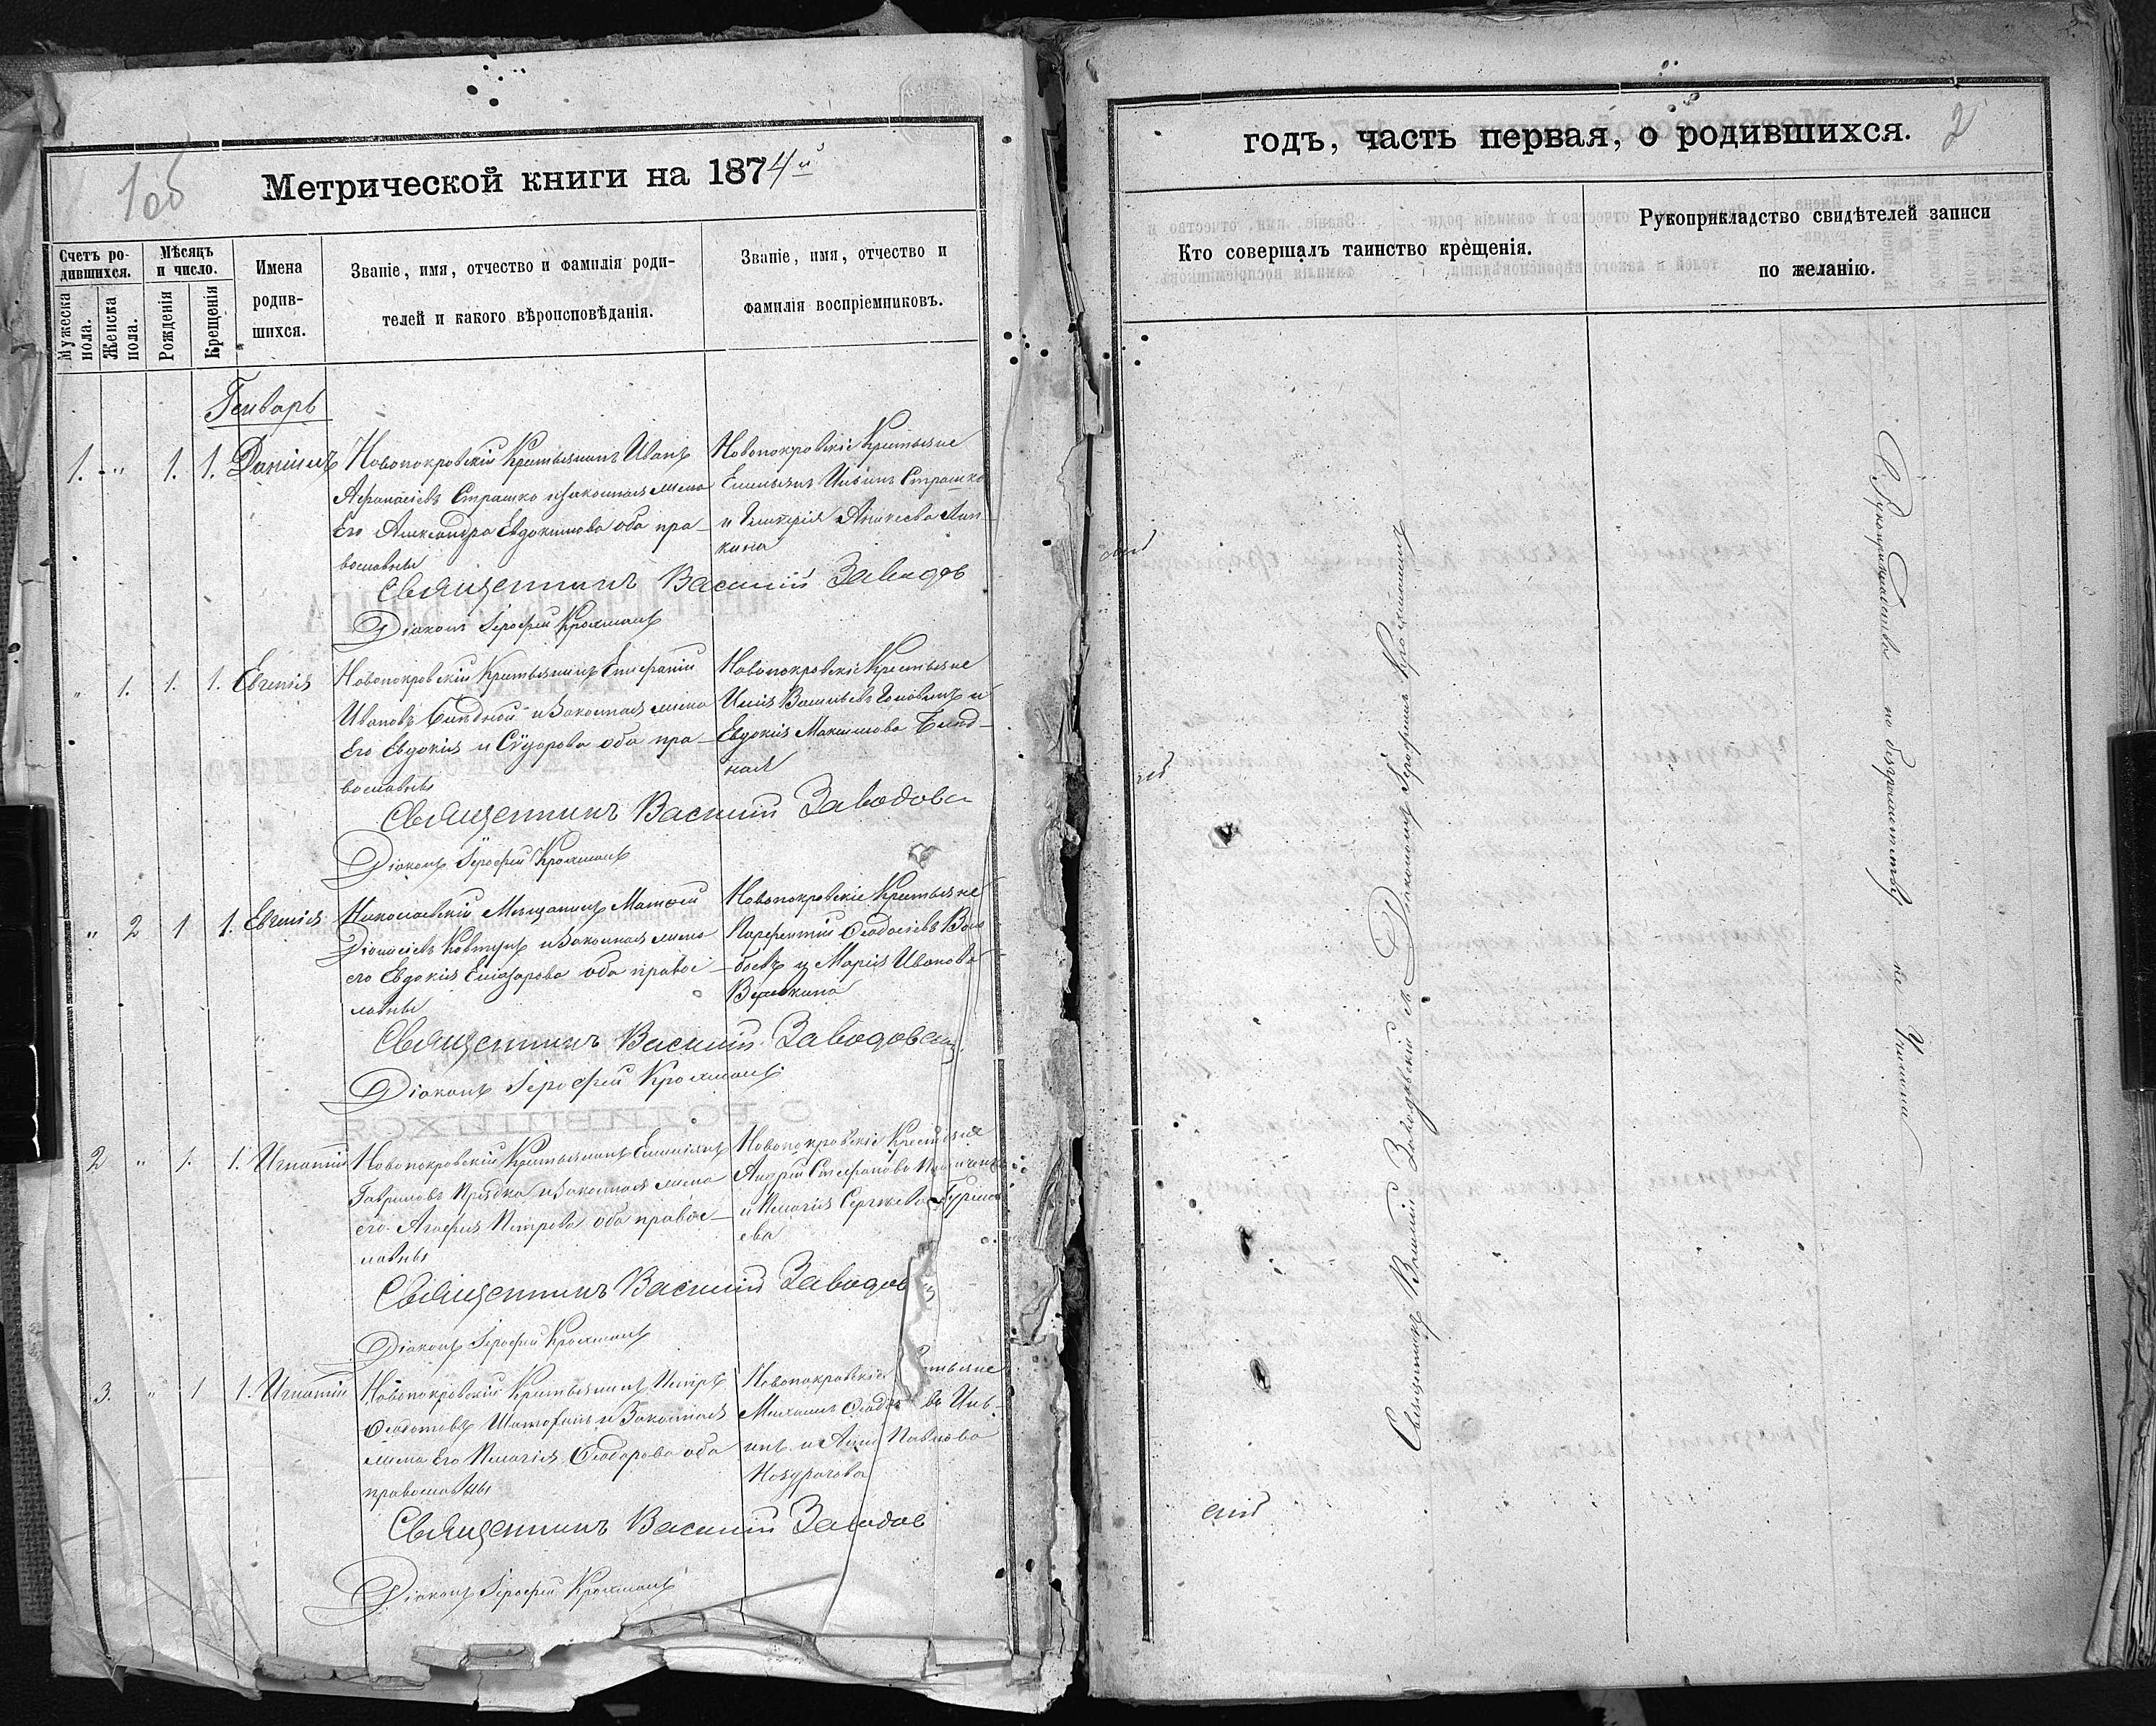 1об
Метрической книги на 1874й
Счетъ ро-
дившихся.
Мужеска
пола.
Женска
пола.
Мѣсяцъ
и число.
Рожденія
Крещенія
Имена
родив-
шихся.
Званіе, имя, отчество и фамилія роди-
телей и какого вѣроисповѣданія.
Званіе, имя, отчество и
фамилія воспріемниковъ.
Генварь
1. - " 1. 1. Даніилъ
Новопокровскій Крестьянинъ Иванъ
Афанасіевъ Страшко и законная жена
Его Александра Евдокимова оба пра-
вославны
Новопокровскіе Крестьяне
Емельянъ Ильинъ Страшко
и Гликерія Аникеева
Священникъ Василій Заводов
Діаконъ Іерофей Крохмаль
" 1. 1. 1. Евгенія
Новопокровскій Крестьянинъ Епифаній
Ивановъ и Законная жена
Его Евдокія Сидорова оба пра-
вославны
Новопокровскіе Крестьяне
Илія Васильевъ и
Евдокія Максимова
ная
Священникъ Василій Заводовс
Діаконъ Іерофей Крохмаль
" 2 1 1. Евгенія
Николаевскій Мещанинъ Матфей
Діонисіевъ Ковтунъ и Законная жена
его Евдокія Елиазарова оба правос-
лавны
Новопокровскіе Крестьяне
Парфентій Феодосіевъ
и Марія Иванова
Священникъ Василій Заводовс
Діаконъ Іерофей Крохмаль
2 " 1. 1. Игнатій
Новопокровскій Крестьянинъ Емиліанъ
Гавриловъ Прядка и Законная жена
его Агафія Петрова оба правос-
лавны
Новопокровскіе Крестьяне
Андрей Стефановъ
и Пелагія Сергѣева
ева
Священникъ Василій Заводов
Діаконъ Іерофей Крохмаль
3. " 1 1. Игнатій
Новопокровскій Крестьянинъ Петръ
Феодотовъ и Законная
жена Его Пелагія Феодорова оба
православны
Новопокровскіе
Михаилъ Иль-
инъ и Анна Павлова
Священникъ Василій Заводов
Діаконъ Іерофей Крохмаль
годъ, часть первая, о родившихся.
2
Кто совершалъ таинство крещенія.
Рукоприкладство свидѣтелей записи
по желанію.
Священникъ Василій Заводовскій съ Діакономъ Іерофеемъ Крохмалемъ
Рукоприкладства по безграмотству не Учинили